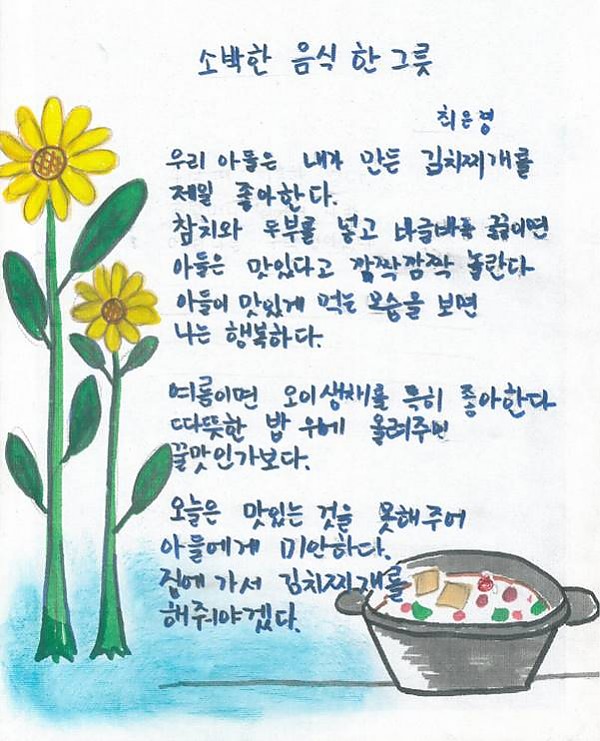 소박한 음식 한 그릇
최은영
우리 아들은 내가 만든 김치찌개를
제일 좋아한다.
참치와 두부를 넣고 바글바글 끓이면
아들은 맛있다고 깜짝깜짝 놀란다
아들이 맛있게 먹는 모습을 보면
나는 행복하다.
여름이면 오이생채를 특히 좋아한다
따뜻한 밥 위에 올려주면
꿀맛인가보다.
오늘은 맛있는 것을 못해주어
아들에게 미안하다.
집에 가서 김치찌개를
해줘야겠다.